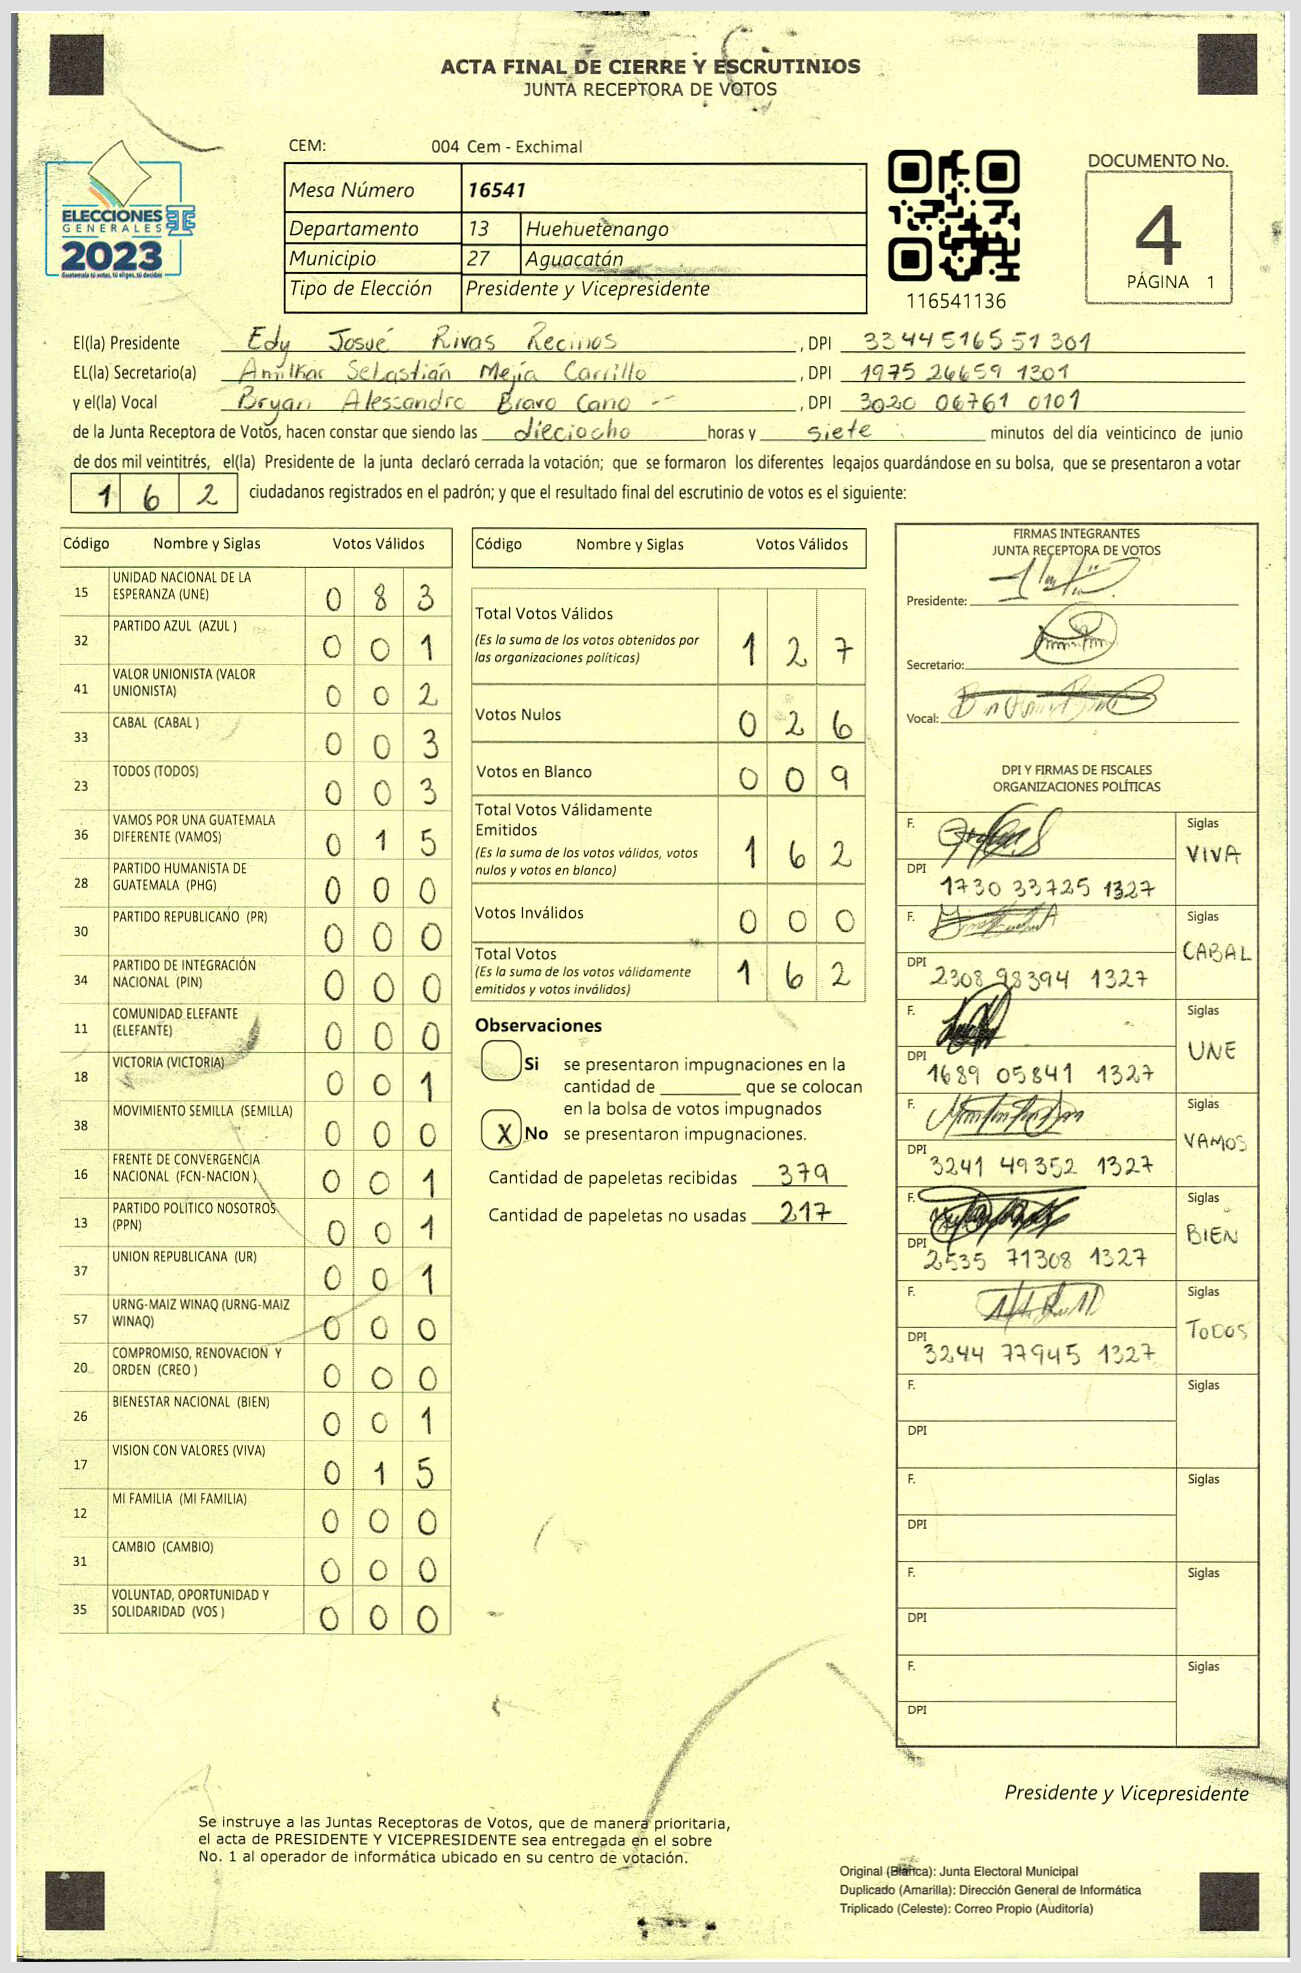 ACTA FINAL DE CIERRE Y ESCRUTINIOS
JUNTA RECEPTORA DE VOTOS
CEM: 004 Cem - Exchimal
ELECCIONES
GENERALES
2023
Guatemala tú votas, tú eliges, tú decides
Mesa Número 16541
Departamento 13 Huehuetenango
Municipio 27 Aguacatán
Tipo de Elección Presidente y Vicepresidente
116541136
DOCUMENTO No.
4
PÁGINA 1
El(la) Presidente Edy Josué Rivas Recinos, DPI 33445165 51 301
EL(la) Secretario(a) Amilkar Sebastián Mejía Carrillo, DPI 1975 26659 1301
y el(la) Vocal Bryan Alessandro Bravo Cano --, DPI 3020 06761 0101
de la Junta Receptora de Votos, hacen constar que siendo las dieciocho horas y siete minutos del día veinticinco de junio
de dos mil veintitrés, el(la) Presidente de la junta declaró cerrada la votación; que se formaron los diferentes legajos guardándose en su bolsa, que se presentaron a votar
1 6 2 ciudadanos registrados en el padrón; y que el resultado final del escrutinio de votos es el siguiente:
Código Nombre y Siglas Votos Válidos
15 UNIDAD NACIONAL DE LA
ESPERANZA (UNE) 0 8 3
32 PARTIDO AZUL (AZUL ) 0 0 1
41 VALOR UNIONISTA (VALOR
UNIONISTA) 0 0 2
33 CABAL (CABAL ) 0 0 3
23 TODOS (TODOS) 0 0 3
36 VAMOS POR UNA GUATEMALA
DIFERENTE (VAMOS) 0 1 5
28 PARTIDO HUMANISTA DE
GUATEMALA (PHG) 0 0 0
30 PARTIDO REPUBLICANO (PR) 0 0 0
34 PARTIDO DE INTEGRACIÓN
NACIONAL (PIN) 0 0 0
11 COMUNIDAD ELEFANTE
(ELEFANTE) 0 0 0
18 VICTORIA (VICTORIA) 0 0 1
38 MOVIMIENTO SEMILLA (SEMILLA) 0 0 0
16 FRENTE DE CONVERGENCIA
NACIONAL (FCN-NACION ) 0 0 1
13 PARTIDO POLITICO NOSOTROS
(PPN) 0 0 1
37 UNION REPUBLICANA (UR) 0 0 1
57 URNG-MAIZ WINAQ (URNG-MAIZ
WINAQ) 0 0 0
20 COMPROMISO, RENOVACION Y
ORDEN (CREO ) 0 0 0
26 BIENESTAR NACIONAL (BIEN) 0 0 1
17 VISION CON VALORES (VIVA) 0 1 5
12 MI FAMILIA (MI FAMILIA) 0 0 0
31 CAMBIO (CAMBIO) 0 0 0
35 VOLUNTAD, OPORTUNIDAD Y
SOLIDARIDAD (VOS ) 0 0 0
Código Nombre y Siglas Votos Válidos
Total Votos Válidos
(Es la suma de los votos obtenidos por
las organizaciones políticas) 1 2 7
Votos Nulos 0 2 6
Votos en Blanco 0 0 9
Total Votos Válidamente
Emitidos
(Es la suma de los votos válidos, votos
nulos y votos en blanco) 1 6 2
Votos Inválidos 0 0 0
Total Votos
(Es la suma de los votos válidamente
emitidos y votos inválidos) 1 6 2
Observaciones
Si se presentaron impugnaciones en la
cantidad de ________ que se colocan
en la bolsa de votos impugnados
X No se presentaron impugnaciones.
Cantidad de papeletas recibidas 379
Cantidad de papeletas no usadas 217
FIRMAS INTEGRANTES
JUNTA RECEPTORA DE VOTOS
Presidente:
Secretario:
Vocal:
DPI Y FIRMAS DE FISCALES
ORGANIZACIONES POLÍTICAS
F. Siglas
VIVA
DPI 1730 33725 1327
F. Siglas
CABAL
DPI 2308 98394 1327
F. Siglas
UNE
DPI 1689 05841 1327
F. Siglas
VAMOS
DPI 3241 49352 1327
F. Siglas
BIEN
DPI 2535 71308 1327
F. Siglas
TODOS
DPI 3244 77945 1327
F. Siglas
DPI
F. Siglas
DPI
F. Siglas
DPI
F. Siglas
DPI
Presidente y Vicepresidente
Se instruye a las Juntas Receptoras de Votos, que de manera prioritaria,
el acta de PRESIDENTE Y VICEPRESIDENTE sea entregada en el sobre
No. 1 al operador de informática ubicado en su centro de votación.
Original (Blanca): Junta Electoral Municipal
Duplicado (Amarilla): Dirección General de Informática
Triplicado (Celeste): Correo Propio (Auditoría)